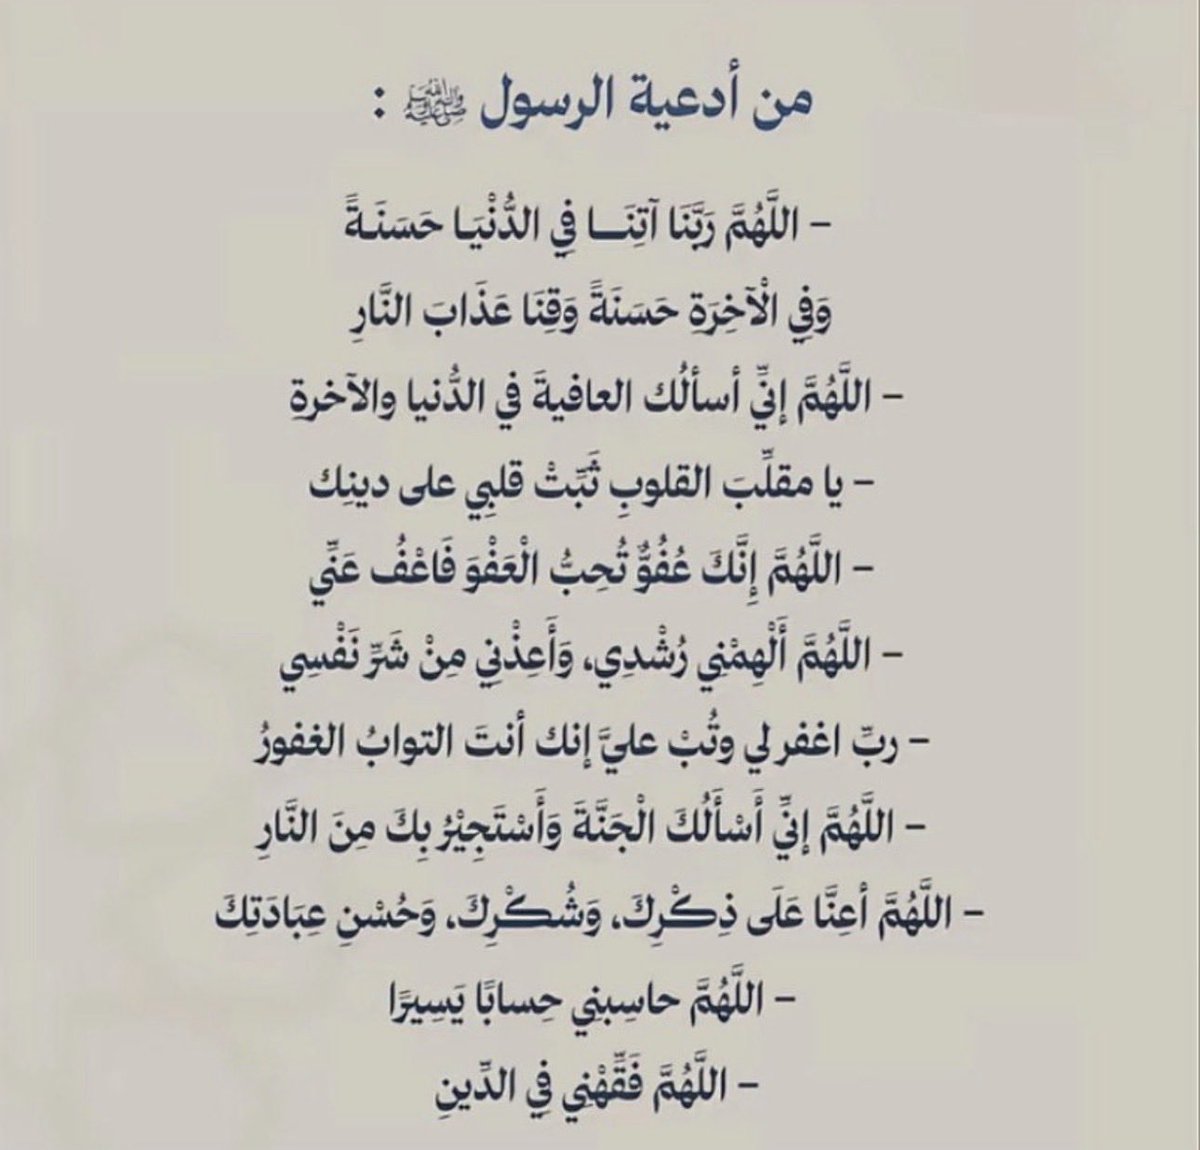 من أدعية الرسول ﷺ :
– اللَّهُمَّ رَبَّنَا آتِنَــا فِي الدُّنْيَـا حَسَنَـةً
وَفِي الْآخِرَةِ حَسَنَةً وَقِنَا عَذَابَ النَّارِ
– اللَّهُمَّ إنِّي أسألُك العافيةَ في الدُّنيا والآخرةِ
– يا مقلِّبَ القلوبِ ثَبِّتْ قلبِي على دينِك
– اللَّهُمَّ إِنَّكَ عُفُوٌّ تُحِبُّ الْعَفْوَ فَاعْفُ عَنِّي
– اللَّهُمَّ أَلْهِمْنِي رُشْدِي، وَأَعِذْنِي مِنْ شَرِّ نَفْسِي
– ربِّ اغفر لي وتُبْ عليَّ إنك أنتَ التوابُ الغفورُ
– اللَّهُمَّ إنِّي أَسْأَلُكَ الْجَنَّةَ وَأَسْتَجِيْرُ بِكَ مِنَ النَّارِ
– اللَّهُمَّ أعِنَّا عَلَى ذِكْرِكَ، وَشُكْرِكَ، وَحُسْنِ عِبَادَتِكَ
– اللَّهُمَّ حاسِبنِي حِسابًا يَسِيرًا
– اللَّهُمَّ فَقِّهْنِي فِي الدِّينِ